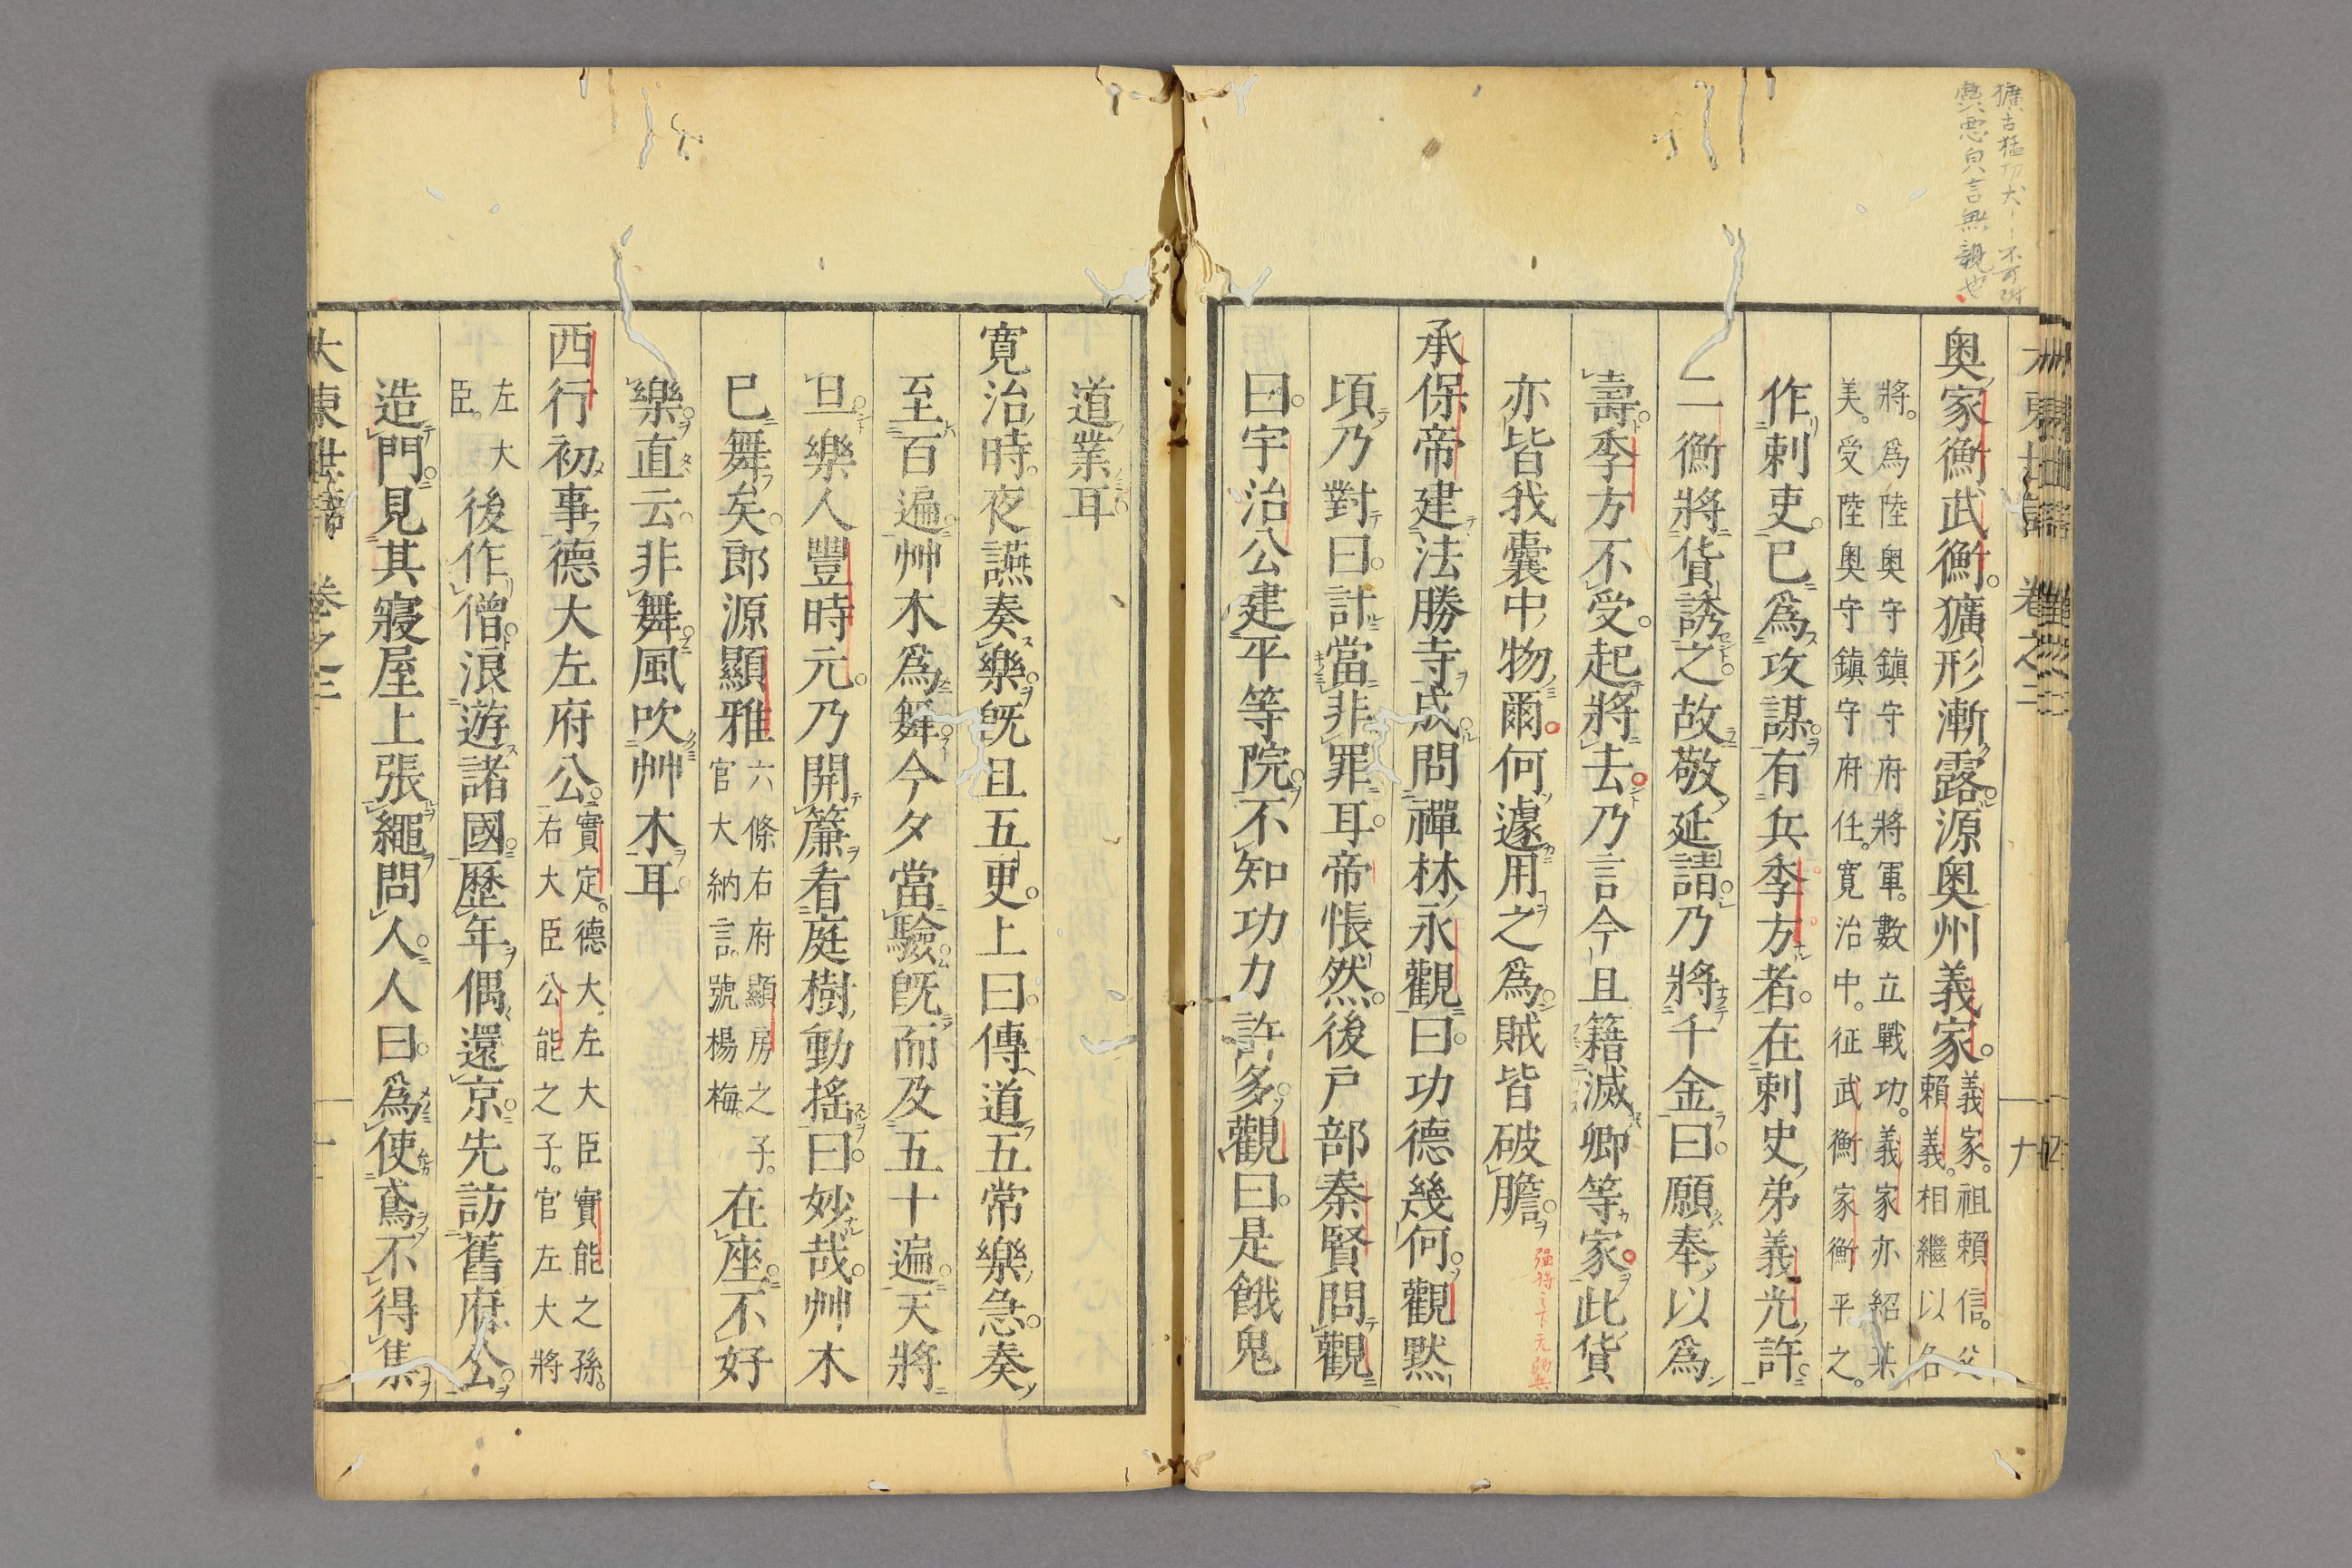 獷古猛切犬〻不可附
奥家衡武衡。獷形漸露。源奥州義家。義家。祖賴信。父
賴義。相繼以名
將。爲陸奥守鎮守府將軍。數立戰功。義家亦紹其
美。受陸奥守鎮守府任。寛治中。征武衡家衡平之。
作刺吏。巳爲攻謀。有兵季方者。在刺史弟義光許。
二衡將貨誘之。故敬延請。乃將千金曰。願奉以爲
壽。季方不受。起將去。乃言今且籍滅卿等家。此貨
亦皆我囊中物爾。何遽用之爲。賊皆破膽。
承保帝建法勝寺成。問禪林永觀曰。功德幾何。觀黙
頃乃對曰。計當非罪耳。帝悵然。後戸部秦賢問觀
曰。宇治公建平等院。不知功力許多。觀曰。是餓鬼
道業耳
寛治時。夜讌奏樂。既且五更。上曰。傳道五常樂急。奏
至百遍。艸木爲舞。今夕當驗。既而及五十遍。天將
旦。樂人豐時元。乃開簾看庭樹動搖曰。妙哉。艸木
巳舞矣。郎源顯雅六條右府顯房之子。
官大納言。號楊梅。在座。不好
樂。直云。非舞。風吹艸木耳
西行初事德大左府公。實定。德大左大臣實能之孫。
右大臣公能之子。官左大將
左大
臣。後作僧。浪遊諸國。歷年。偶還京。先訪舊府公。
造門。見其寢屋上張繩問人。人曰。爲使鳶不得集
大東世語 卷之三